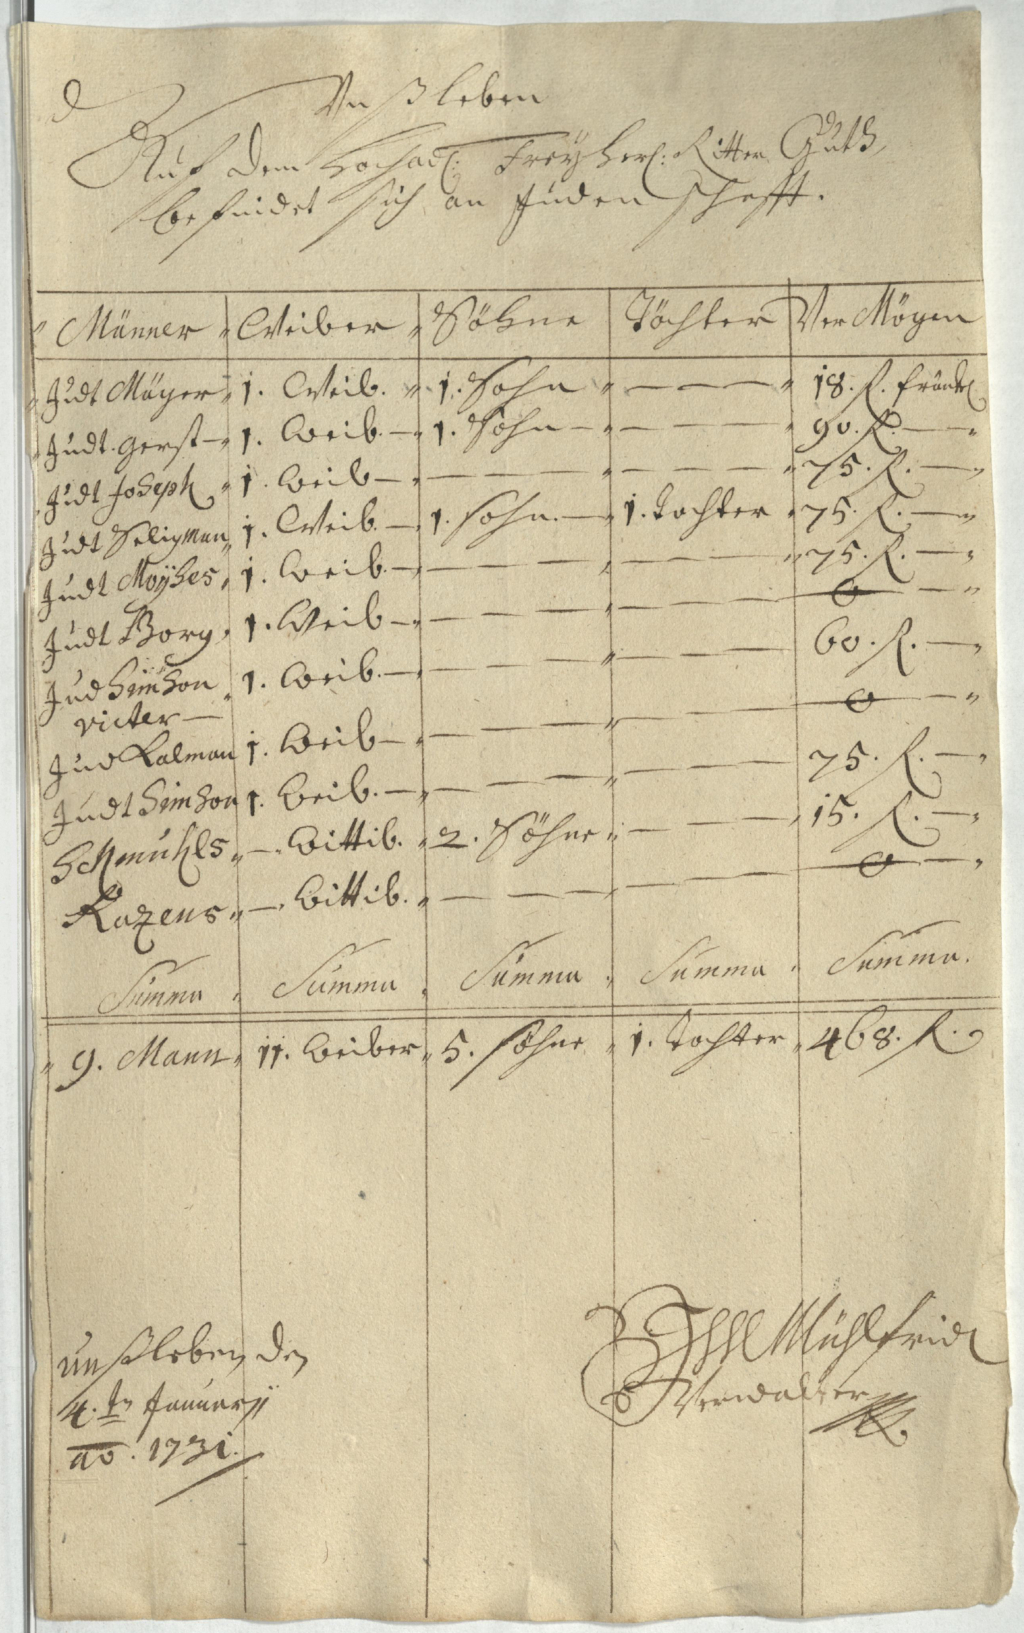 Unßleben
Auf dem Hochadl: Freyherl: Ritter Guth,
befindet sich an Judenschafft.
Männer Weiber Söhne Töchter VerMögen
Judt Mäyer 1. Weib. 1. Sohn — — — 18. fl. fränkl
Judt. gerst — 1. Weib. — 1. Sohn — — — — 90. fl. —
Judt Joseph 1. Weib — — — — — — — 75. fl. —
Judt Seligman 1. Weib. — 1. Sohn. — 1. Tochter 75. fl. —
Judt Moÿses 1. Weib. — — — — — — — 75. fl. —
Judt Borg 1. Weib — — — — — — — 0 —
Jud Simson 1. Weib. — — — — — — — 60. fl. —
victer —
Jud Kalman 1. Weib — — — — — — — 0 —
Judt Simson 1. Weib. — — — — — — — 75. fl. —
Schmuhls — Wittib. 2. Söhne — — — 15. fl. —
Kazens — Wittib. — — — — — — 0 —
Summa Summa Summa Summa Summa.
9. Mann 11. Weiber 5. Söhne 1. Tochter 468. fl.
Unßleben den
4.ten Januarÿ
ao. 1731.
Mühlfridl
Verwalter